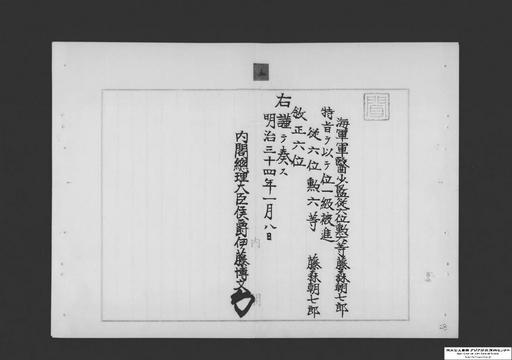 海軍軍醫少監從六位勲六等藤森朝七郎
特旨ヲ以テ位一級被進
從六位勲六等 藤森朝七郎
敘正六位
右謹テ奏ス
明治三十四年一月八日
内閣總理大臣侯爵伊藤博文